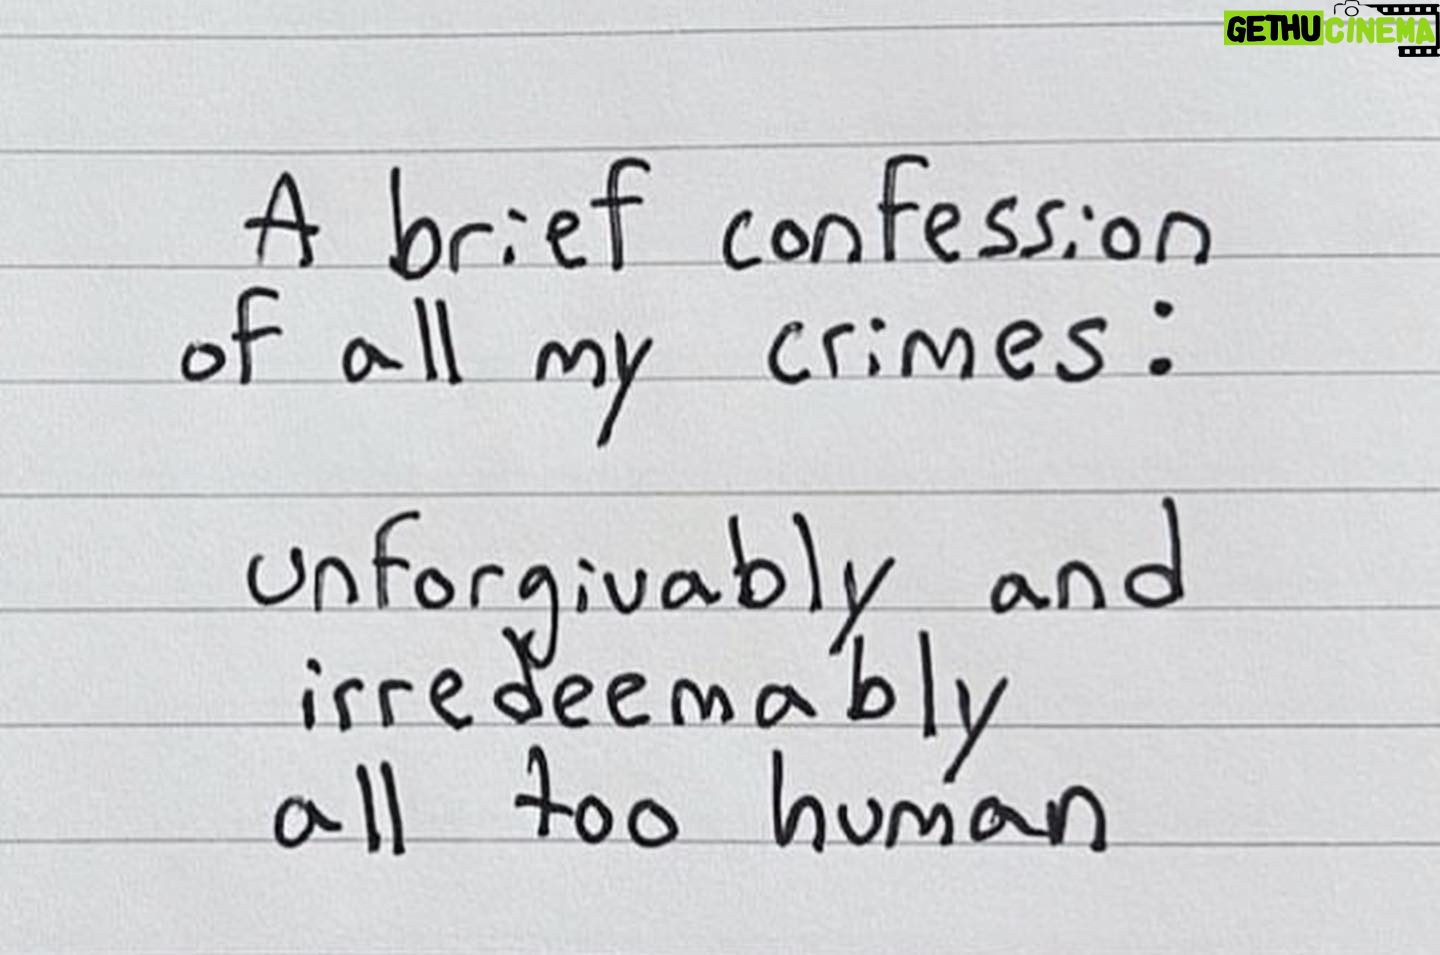 GETHUCINEMA
A brief confession
of all my crimes:
unforgivably and
irredeemably
all too human